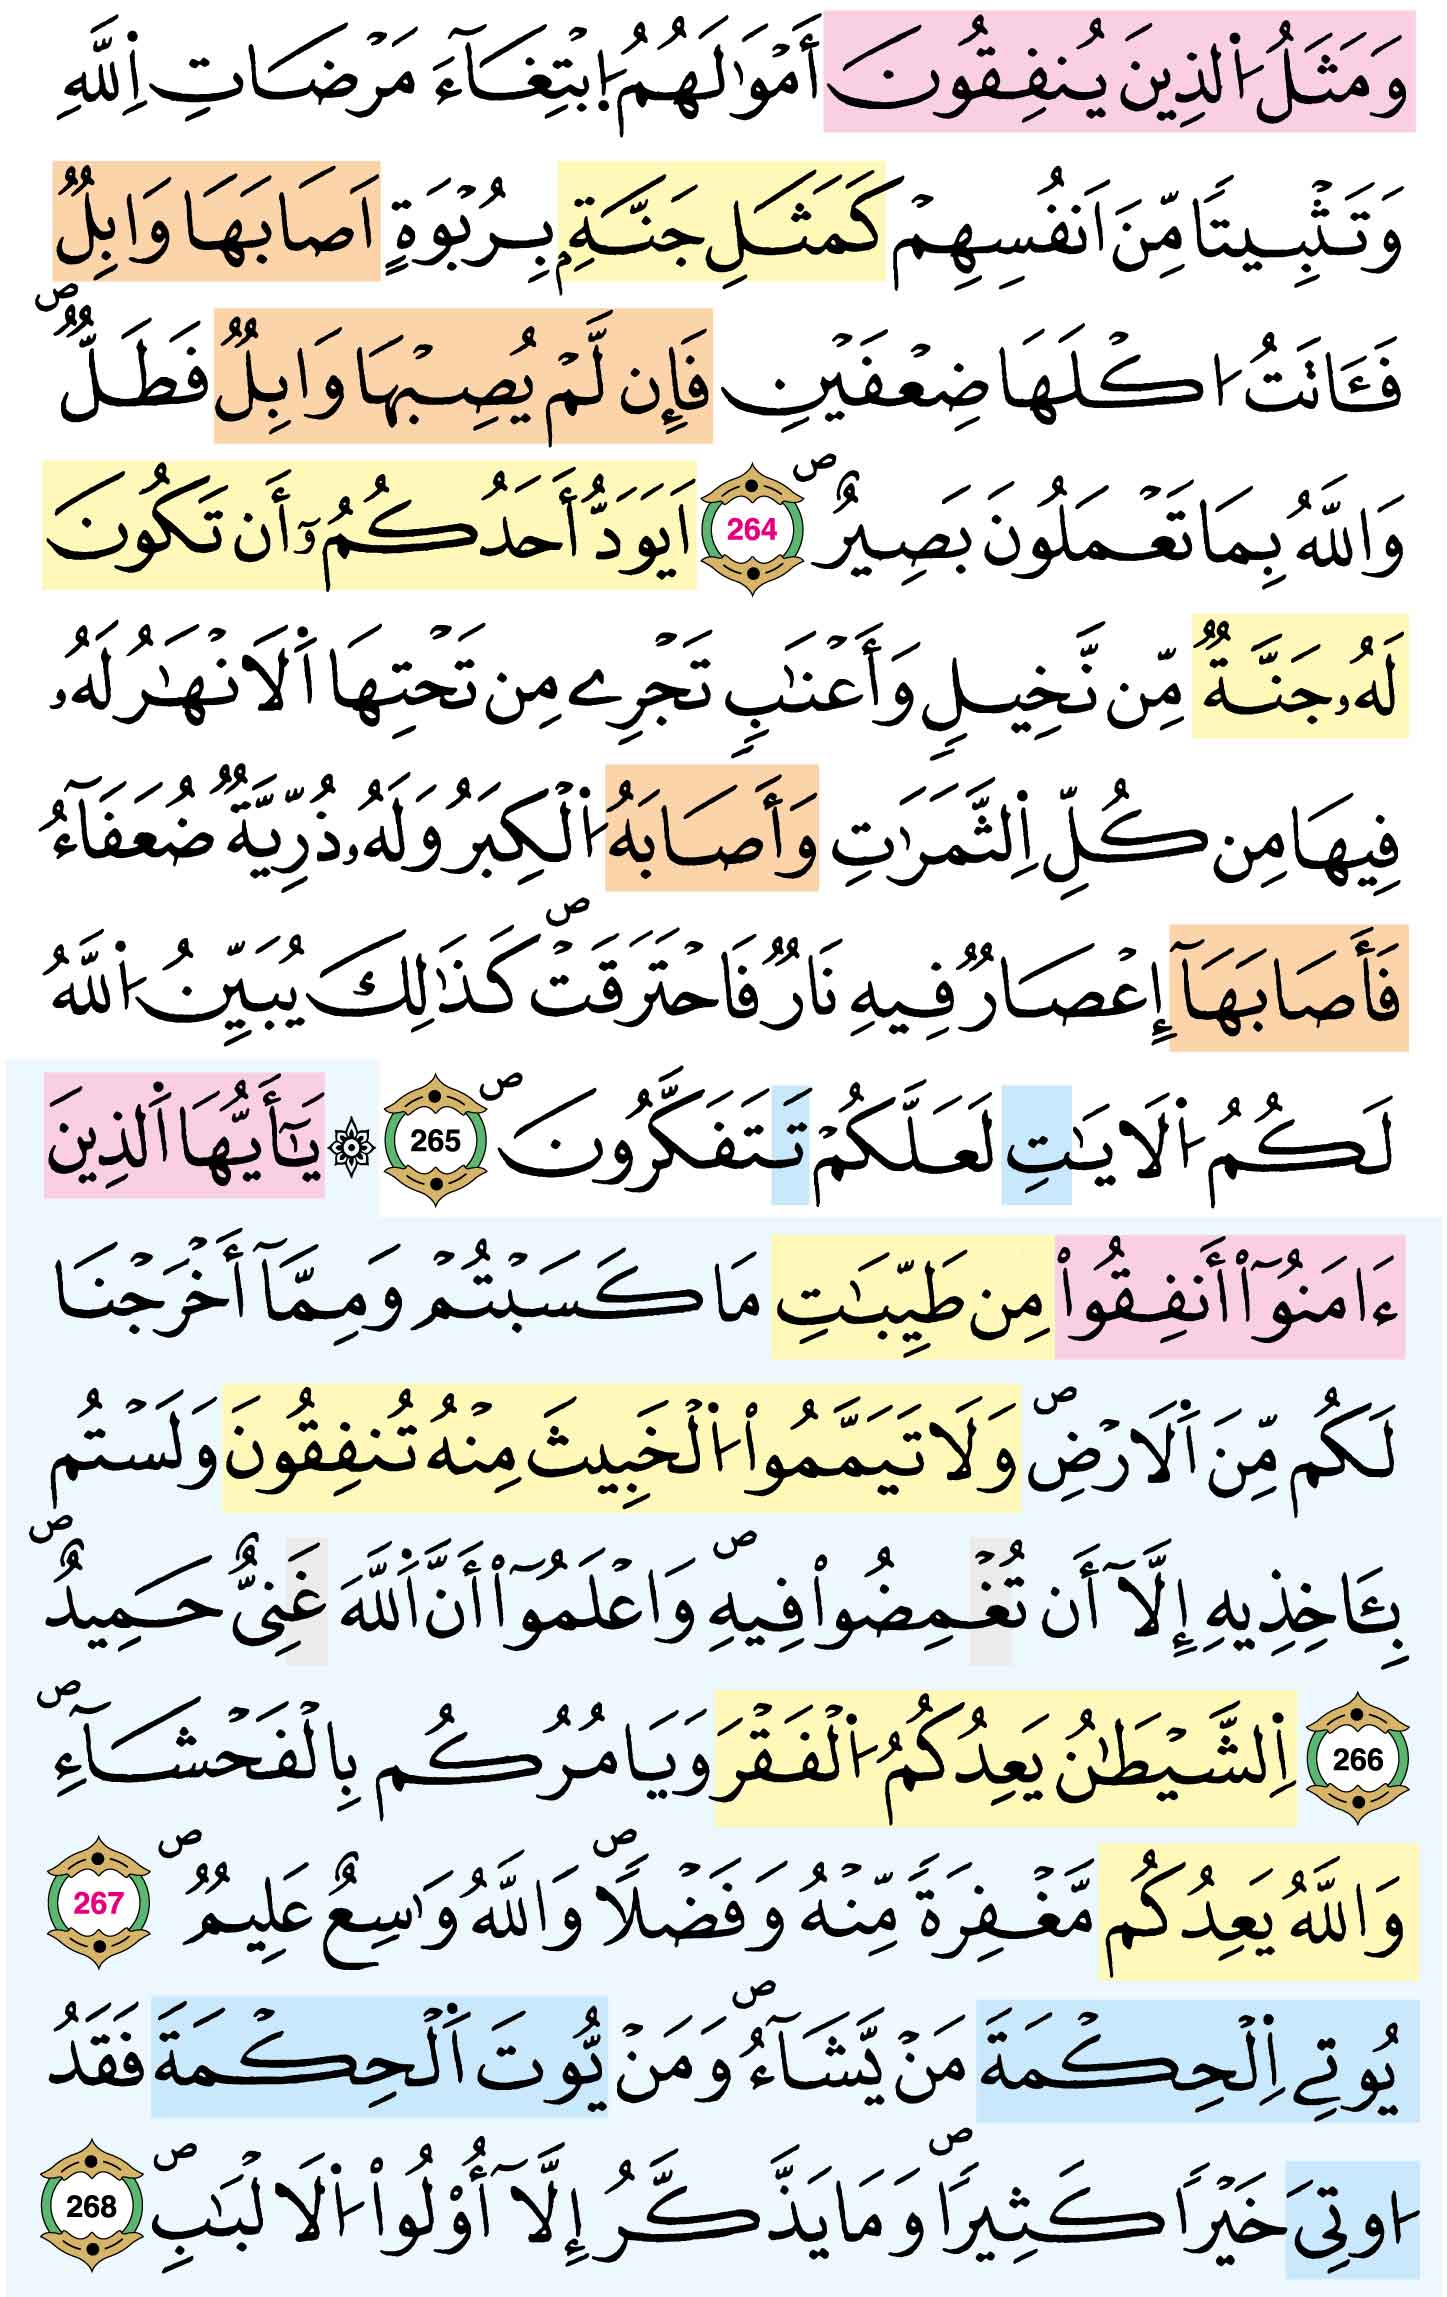 وَمَثَلُ اُ۬لذِينَ يُنفِقُونَ أَمْوَٰلَهُمُ اُ۪بْتِغَآءَ مَرْضَاتِ اِ۬للَّهِ
وَتَثْبِيتاً مِّنَ اَنفُسِهِمْ كَمَثَلِ جَنَّةِۢ بِرُبْوَةٍ اَصَابَهَا وَابِلٞ
فَـَٔاتَتُ ا۟كْلَهَا ضِعْفَيْنِ فَإِن لَّمْ يُصِبْهَا وَابِلٞ فَطَلّٞۖ
وَاللَّهُ بِمَا تَعْمَلُونَ بَصِيرٌۖ 264 اَيَوَدُّ أَحَدُكُمُۥٓ أَن تَكُونَ
لَهُۥ جَنَّةٞ مِّن نَّخِيلٖ وَأَعْنَٰبٖ تَجْرِے مِن تَحْتِهَا اَ۬لَانْهَٰرُ لَهُۥ
فِيهَا مِن كُلِّ اِ۬لثَّمَرَٰتِ وَأَصَابَهُ اُ۬لْكِبَرُ وَلَهُۥ ذُرِّيَّةٞ ضُعَفَآءُ
فَأَصَابَهَآ إِعْصَارٞ فِيهِ نَارٞ فَاحْتَرَقَتْۖ كَذَٰلِكَ يُبَيِّنُ اُ۬للَّهُ
لَكُمُ اُ۬لَايَٰتِ لَعَلَّكُمْ تَتَفَكَّرُونَۖ 265 ۞ يَٰٓأَيُّهَا اَ۬لذِينَ
ءَامَنُوٓاْ أَنفِقُواْ مِن طَيِّبَٰتِ مَا كَسَبْتُمْ وَمِمَّآ أَخْرَجْنَا
لَكُم مِّنَ اَ۬لَارْضِۖ وَلَا تَيَمَّمُواْ اُ۬لْخَبِيثَ مِنْهُ تُنفِقُونَ وَلَسْتُم
بِـَٔاخِذِيهِ إِلَّآ أَن تُغْمِضُواْ فِيهِۖ وَاعْلَمُوٓاْ أَنَّ اَ۬للَّهَ غَنِيٌّ حَمِيدٌۖ
266 اِ۬لشَّيْطَٰنُ يَعِدُكُمُ اُ۬لْفَقْرَ وَيَامُرُكُم بِالْفَحْشَآءِۖ
وَاللَّهُ يَعِدُكُم مَّغْفِرَةٗ مِّنْهُ وَفَضْلاٗۖ وَاللَّهُ وَٰسِعٌ عَلِيمٞۖ 267
يُوتِے اِ۬لْحِكْمَةَ مَنْ يَّشَآءُۖ وَمَنْ يُّوتَ اَ۬لْحِكْمَةَ فَقَدُ
ا۟وتِيَ خَيْراٗ كَثِيراٗۖ وَمَا يَذَّكَّرُ إِلَّآ أُوْلُواْ اُ۬لَالْبَٰبِۖ 268